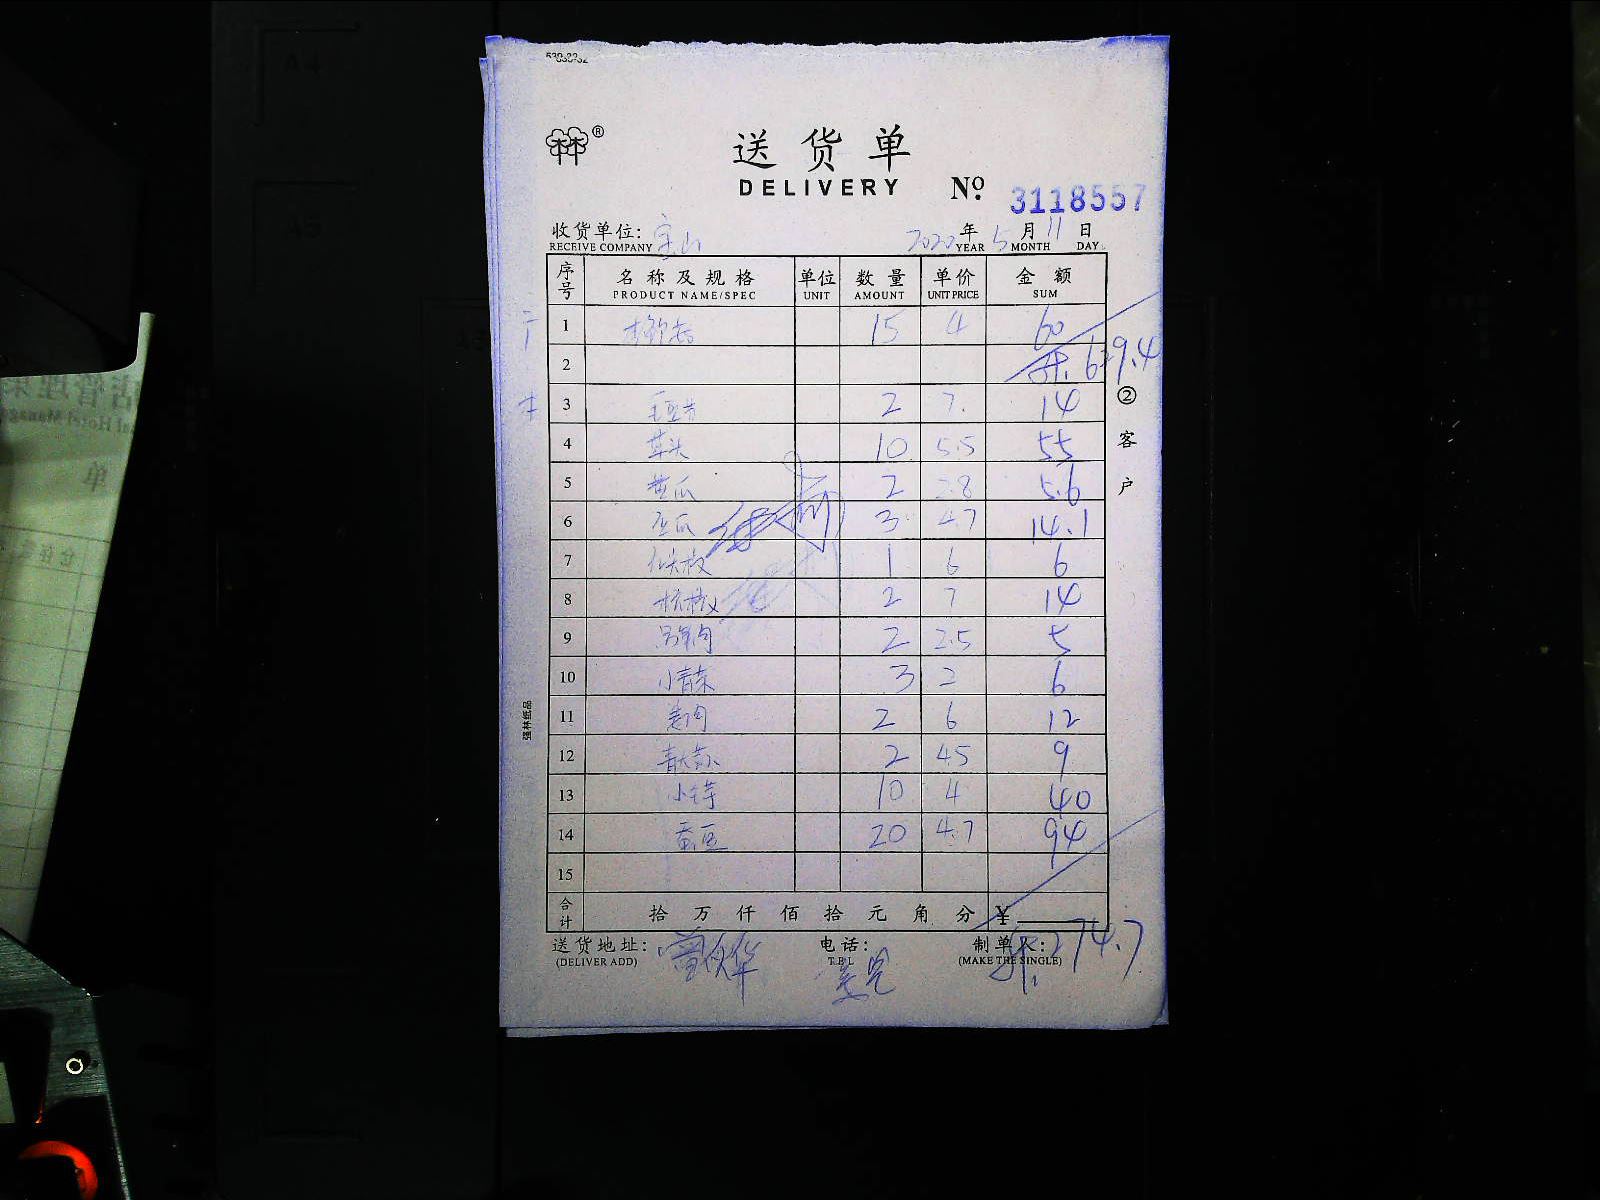 送货单
DELIVERY
Nº 3118557
收货单位: 宝山 2020年5月11日
RECEIVE COMPANY YEAR MONTH DAY
序号 名称及规格 单位 数量 单价 金额
PRODUCT NAME/SPEC UNIT AMOUNT UNIT PRICE SUM
1 15 4 60
2 639.4
3 毛豆节 2 7. 14
4 草头 10 5.5 55
5 黄瓜 2 2.8 5.6
6 冬瓜 3 4.7 14.1
7 1 6 6
8 2 7 14
9 2 2.5 5
10 小青菜 3 2 6
11 姜肉 2 6 12
12 2 45 9
13 小芋 10 4 40
14 蚕豆 20 4.7 94
15
合计 拾万仟佰拾元角分 ¥
共: 274.7
送货地址: 电话: 制单人:
(DELIVER ADD) TEL (MAKE THE SINGLE)
②客户
强林纸品
A4
A5
单